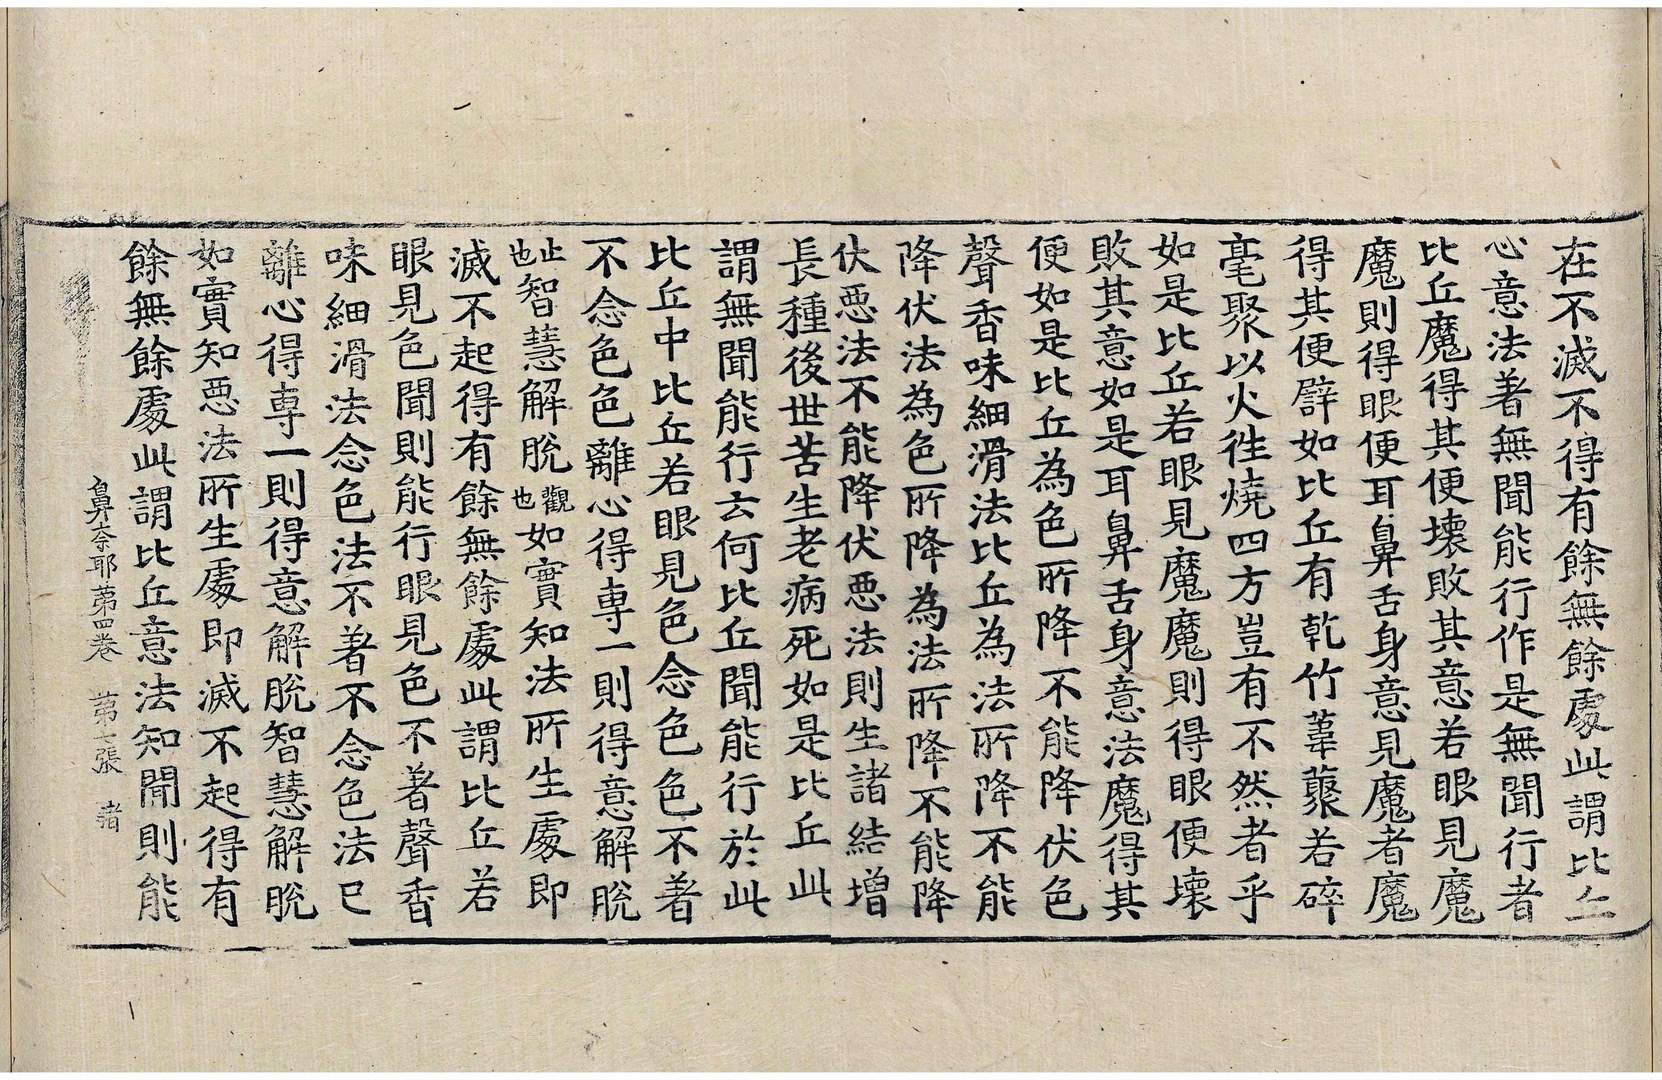 在不滅不得有餘無餘處此謂比丘
心意法著無聞能行作是無聞行者
比丘魔得其便壞敗其意若眼見魔
魔則得眼便耳鼻舌身意見魔者魔
得其便譬如比丘有乾竹葦藂若碎
毫聚以火徃燒四方豈有不然者乎
如是比丘若眼見魔魔則得眼便壞
敗其意如是耳鼻舌身意法魔得其
便如是比丘為色所降不能降伏色
聲香味細滑法比丘為法所降不能
降伏法為色所降為法所降不能降
伏惡法不能降伏惡法則生諸結增
長種後世苦生老病死如是比丘此
謂無聞能行云何比丘聞能行於此
比丘中比丘若眼見色念色色不著
不念色色離心得專一則得意解脫
止也智慧解脫觀也如實知法所生處即
滅不起得有餘無餘處此謂比丘若
眼見色聞則能行眼見色不著聲香
味細滑法念色法不著不念色法已
離心得專一則得意解脫智慧解脫
如實知惡法所生處即滅不起得有
餘無餘處此謂比丘意法知聞則能
鼻奈耶苐四卷 苐七張 渚